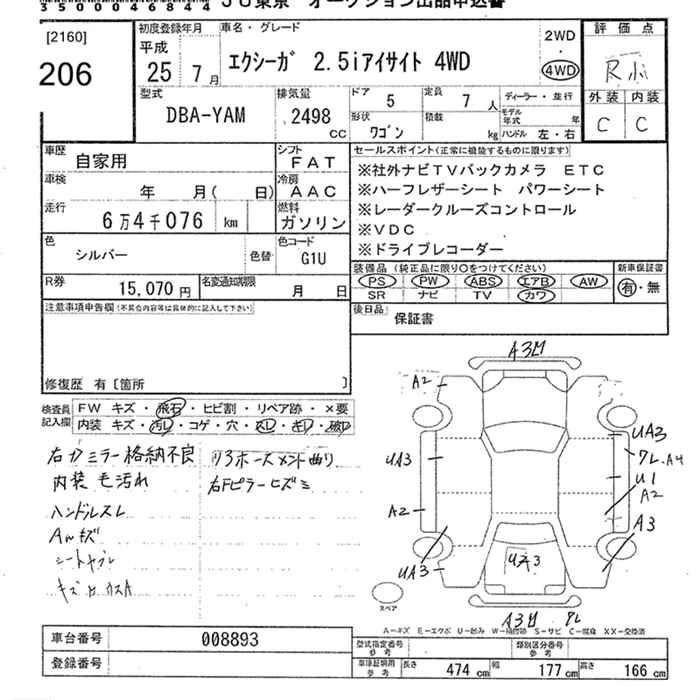 35000468444
JU東京 オークション出品申込書
[2160]
206
初度登録年月
平成
25年 7月
車名・グレード
エクシーガ 2.5iアイサイト 4WD
2WD
・
4WD
評価点
R
外装 内装
C C
型式
DBA-YAM
排気量
2498
CC
ドア
5
定員
7人
形状
ワゴン
積載
kg
ディーラー・並行
モデル年式 年
ハンドル 左・右
車歴
自家用
車検
年 月( 日)
走行
6万4千076 km
シフト
FAT
冷房
AAC
燃料
ガソリン
セールスポイント(正常に機能するものに限ります)
※社外ナビTVバックカメラ ETC
※ハーフレザーシート パワーシート
※レーダークルーズコントロール
※VDC
※ドライブレコーダー
色
シルバー
色替
色コード
G1U
R券
15,070円
名変通知期限
月 日
装備品(純正品に限り○をつけてください)
PS PW ABS エアB AW
SR ナビ TV カワ
新車保証書
有・無
後日品
保証書
注意事項申告欄(不具合内容等は具体的に記入して下さい)
修復歴 有〔箇所 〕
検査員記入欄
FW キズ・飛石・ヒビ割・リペア跡・×要
内装 キズ・汚レ・コゲ・穴・スレ・キレ・破レ
右カミラー格納不良
内装毛汚れ
ハンドルスレ
Awキズ
右Fピラーヒズミ
A3M
A2
UA3
A2
UA3
UA3
ワレ A4
U1
A2
A3
A3
ワレ
スペア
A-キズ E-エクボ U-凹み W-補修跡 S-サビ C-腐食 XX-交換済
車台番号
008893
登録番号
型式指定番号
参考
類別区分番号
参考
車庫証明用
参考
長さ 474cm
幅 177cm
高さ 166cm